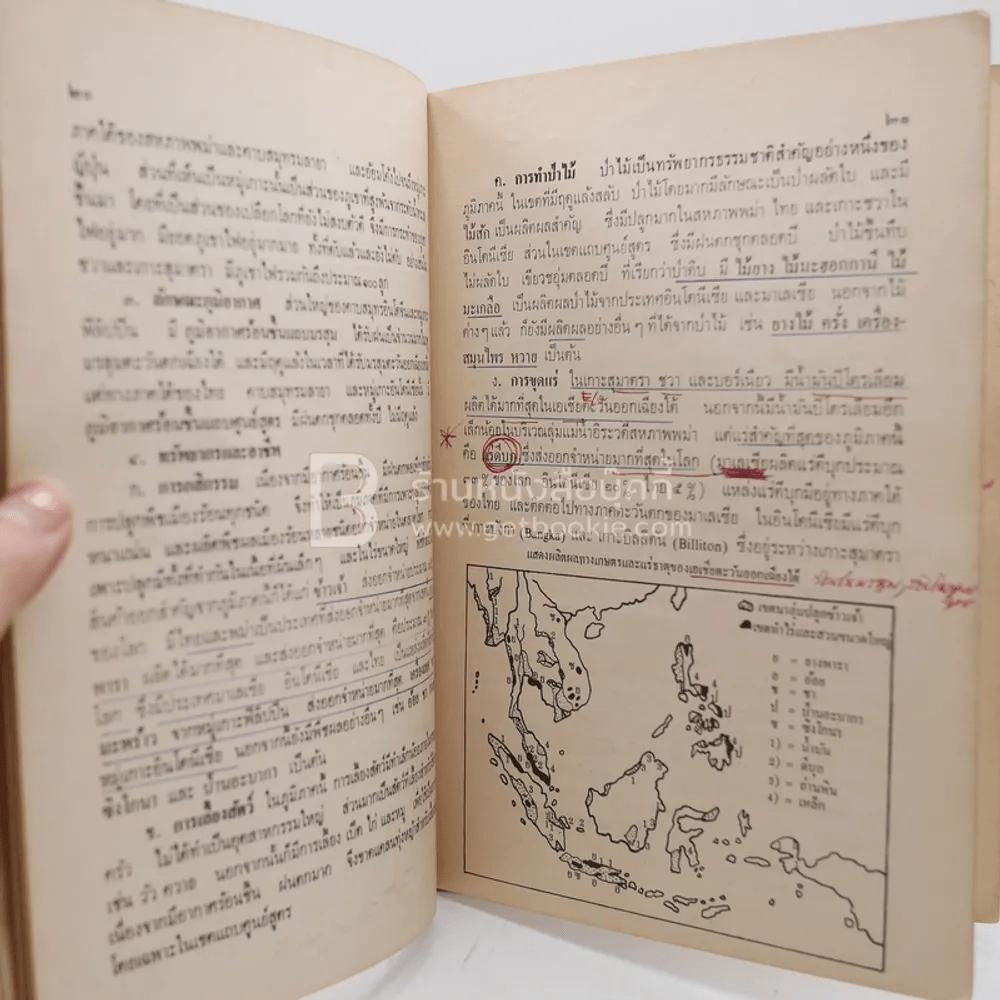 ๒๐
ภาคใต้ของสหภาพพม่าและคาบสมุทรมลายา และอ้อมโค้งไปจนถึงหมู่เกาะ
ญี่ปุ่น ส่วนที่เห็นเป็นหมู่เกาะนั้นเป็นส่วนของภูเขาที่สูงพ้นจากระดับน้ำทะเล
ขึ้นมา โดยที่เป็นส่วนของเปลือกโลกที่ยังไม่สงบตัวดี จึงมีการ
ไฟอยู่มาก มียอดภูเขาไฟอยู่มากมาย ทั้งที่ดับแล้วและยังไม่ดับ
ชวาและเกาะสุมาตรา มีภูเขาไฟรวมกันถึงประมาณ ๑๐๐ ลูก
๓. ลักษณะภูมิอากาศ ส่วนใหญ่ของคาบสมุทรอินโดจีนและหมู่เกาะ
ฟิลิปปิน มีภูมิอากาศร้อนชื้นแถบมรสุม ได้รับฝนเป็นจำนวนมาก
มรสุมตะวันตกเฉียงใต้ และมีฤดูแล้งในเวลาที่ได้รับมรสุมตะวันออกเฉียงเหนือ
แต่ทางภาคใต้ของไทย คาบสมุทรมลายา และหมู่เกาะอินโดนีเซีย มี
ภูมิอากาศร้อนชื้นแถบศูนย์สูตร มีฝนตกชุกตลอดทั้งปี ไม่มีฤดูแล้ง
๔. ทรัพยากรและอาชีพ
ก. การกสิกรรม เนื่องจากมีอากาศร้อน มีฝนตก
การปลูกพืชเมืองร้อนทุกชนิด จึงทำให้
หนาแน่น และผลิตพืชผลเมืองร้อน
เพาะปลูกมีทั้งที่ทำกันในเนื้อที่อันเล็กๆ และในไร่ขนาดใหญ่
สินค้าออกสำคัญจากภูมิภาคนี้ได้แก่ ข้าวเจ้า ส่งออกจำหน่าย
ของโลก มีไทยและพม่าเป็นประเทศที่ส่งออกจำหน่ายมากที่สุด
พารา ผลิตได้มากที่สุด และส่งออกจำหน่ายมากที่สุด คือประมาณ
โลก ซึ่งมีประเทศมาเลเซีย อินโดนีเซีย และไทย เป็นแหล่ง
มะพร้าว จากหมู่เกาะฟิลิปปิน ส่งออกจำหน่ายมากที่สุด เครื่องเทศ จาก
หมู่เกาะอินโดนีเซีย นอกจากนี้ยังมีพืชผลอย่างอื่นๆ เช่น อ้อย ชา
ซิงโกนา และ ป่านอะบากา เป็นต้น
ข. การเลี้ยงสัตว์ ในภูมิภาคนี้ การเลี้ยงสัตว์มีทำเล็กน้อย
ครัว ไม่ได้ทำเป็นอุตสาหกรรมใหญ่ ส่วนมากเป็นสัตว์ที่เลี้ยงสำหรับ
เช่น วัว ควาย นอกจากนั้นก็มีการเลี้ยง เป็ด ไก่ และหมู เพื่อ
เนื่องจากมีอากาศร้อนชื้น ฝนตกมาก จึงขาดแคลนทุ่งหญ้าสำหรับ
โดยเฉพาะในเขตแถบศูนย์สูตร
๒๑
ค. การทำป่าไม้ ป่าไม้เป็นทรัพยากรธรรมชาติสำคัญอย่างหนึ่งของ
ภูมิภาคนี้ ในเขตที่มีฤดูแล้งสลับ ป่าไม้โดยมากมีลักษณะเป็นป่าผลัดใบ และมี
ไม้สัก เป็นผลิตผลสำคัญ ซึ่งมีปลูกมากในสหภาพพม่า ไทย และเกาะชวาใน
อินโดนีเซีย ส่วนในเขตแถบศูนย์สูตร ซึ่งมีฝนตกชุกตลอดปี ป่าไม้ขึ้นทึบ
ไม่ผลัดใบ เขียวชอุ่มตลอดปี ที่เรียกว่าป่าดิบ มี ไม้ยาง ไม้มะฮอกกานี ไม้
มะเกลือ เป็นผลิตผลป่าไม้จากประเทศอินโดนีเซีย และมาเลเซีย นอกจากไม้
ต่างๆ แล้ว ก็ยังมีผลิตผลอย่างอื่นๆ ที่ได้จากป่าไม้ เช่น ยางไม้ ครั่ง เครื่อง-
สมุนไพร หวาย เป็นต้น
ง. การขุดแร่ ในเกาะสุมาตรา ชวา และบอร์เนียว มีน้ำมันปิโตรเลียม
ผลิตได้มากที่สุดในเอเซียตะวันออกเฉียงใต้ นอกจากนี้มีน้ำมันปิโตรเลียมอีก
เล็กน้อยในบริเวณลุ่มแม่น้ำอิระวดีสหภาพพม่า แต่แร่สำคัญที่สุดของภูมิภาคนี้
คือ แร่ดีบุก ซึ่งส่งออกจำหน่ายมากที่สุดในโลก (มาเลเซียผลิตแร่ดีบุกประมาณ
๓๓% ของโลก อินโดนีเซีย ๒๐% ไทย ๕%) แหล่งแร่ดีบุกมีอยู่ทางภาคใต้
ของไทย และติดต่อไปทางภาคตะวันตกของมาเลเซีย ในอินโดนีเซียมีแร่ดีบุก
ที่เกาะบังกา (Bangka) และ เกาะบิลลิตัน (Billiton) ซึ่งอยู่ระหว่างเกาะสุมาตรา
แสดงผลิตผลทางเกษตรและแร่ธาตุของเอเซียตะวันออกเฉียงใต้
เขตนาลุ่มปลูกข้าวเจ้า
เขตทำไร่และสวนขนาดใหญ่
ย = ยางพารา
อ = อ้อย
ช = ชา
ป = ป่านอะบากา
ซ = ซิงโกนา
1) = น้ำมัน
2) = ดีบุก
3) = ถ่านหิน
4) = เหล็ก
B ร้านหนังสือบุ๊คกี้
www.getbookie.com